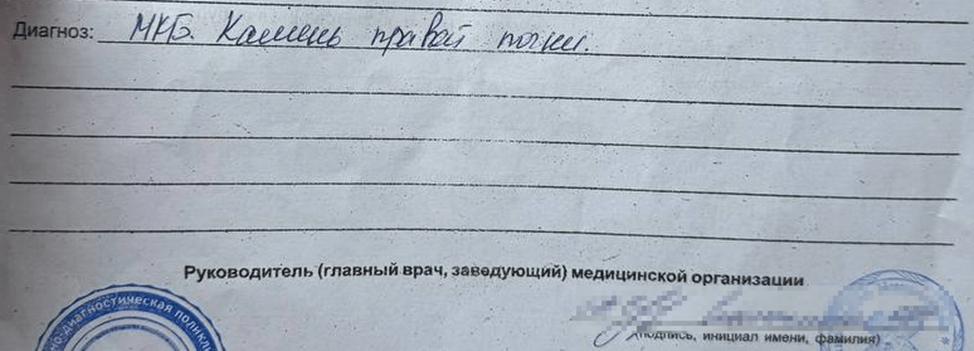 Диагноз: МКБ. Камень правой почки.
Руководитель (главный врач, заведующий) медицинской организации
(подпись, инициал имени, фамилия)
но-диагностическая поликли